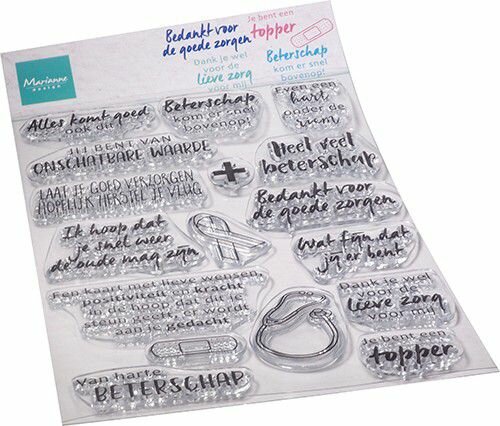 Bedankt voor
de goede zorgen
Je bent een
topper
Marianne
design
Dank je wel
voor de
lieve zorg
voor mij!
Beterschap
kom er snel
bovenop!
Alles komt goed
ook dit
Beterschap
kom er snel
bovenop!
Even een
hart
onder de
riem
JIJ BENT VAN
ONSCHATBARE WAARDE
Heel veel
beterschap
LAAT JE GOED VERZORGEN
HOPELIJK HERSTEL JE VLUG
Bedankt voor
de goede zorgen
Ik hoop dat
je snel weer
de oude mag zijn
Wat fijn dat
jij er bent
Een kaart met lieve wensen
positiviteit & kracht
dat dit je
steunt, er wordt
aan je gedacht
Dank je wel
voor de
lieve zorg
voor mij!
Je bent een
topper
Van harte
BETERSCHAP